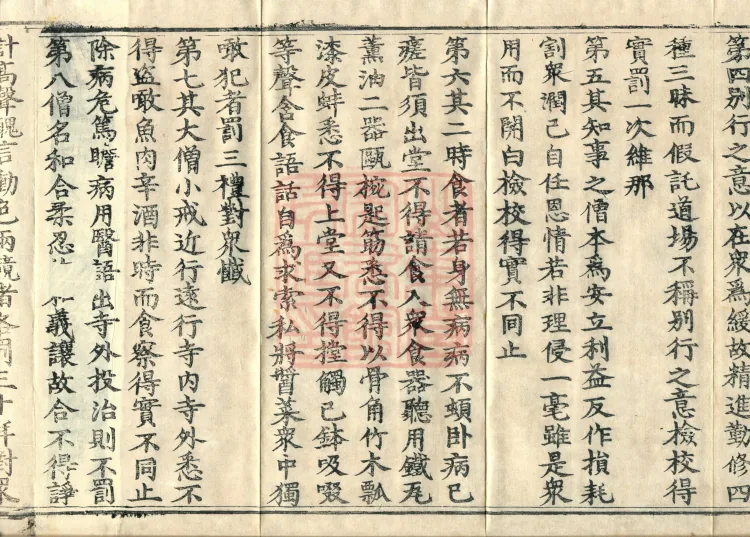 第四別行之意以在衆爲緩故精進勤修四
種三昧而假託道場不稱別行之意檢校得
實罰一次維那
第五其知事之僧本爲安立利益反作損耗
割衆潤己自任恩情若非理侵一毫雖是衆
用而不開白檢校得實不同止
第六其二時食者若身無病病不頓卧病已
瘥皆須出堂不得請食入衆食器聽用鐵瓦
薰油二器甌椀匙筋悉不得以骨角竹木瓢
漆皮蚌悉不得上堂又不得摚觸已鉢吸啜
等聲含食語話自爲求索私將醬菜衆中獨
噉犯者罰三禮對衆懺
第七其大僧小戒近行遠行寺内寺外悉不
得盜噉魚肉辛酒非時而食察得實不同止
除病危篤瞻病用醫語出寺外投治則不罰
第八僧名和合柔忍 義讓故合不得諍
計高聲醜言動色兩競者各罰三十拜對衆